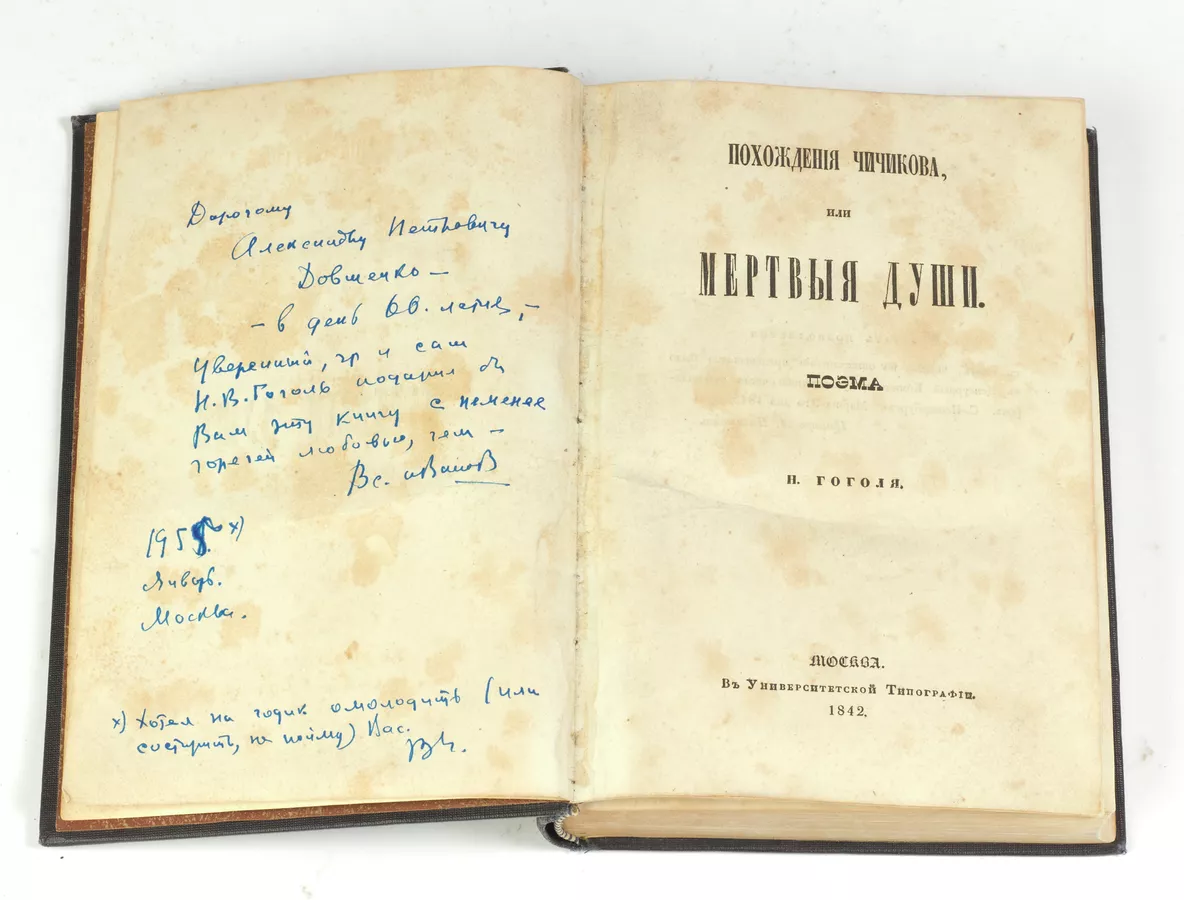 Дорогому
Александру Петровичу
Довженко —
— в день 60-летия, —
Уверенный, что и сам
Н.В. Гоголь подарил бы
Вам эту книгу с неменее
горячей любовью, чем —
Вс. Иванов
195 х)
Январь.
Москва.
х) Хотел на годик омолодить (или
состарить, не пойму) Вас.
ПОХОЖДЕНІЯ ЧИЧИКОВА,
ИЛИ
МЕРТВЫЯ ДУШИ.
ПОЭМА
Н. ГОГОЛЯ.
МОСКВА.
Въ Университетской Типографіи.
1842.